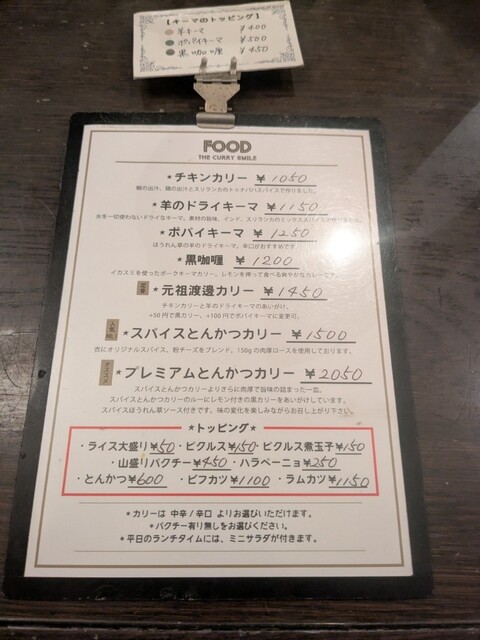 【キーマのトッピング】
羊キーマ ¥400
ポパイキーマ ¥500
黒咖喱 ¥450
FOOD
THE CURRY SMILE
★チキンカリー ¥1050
鯛の出汁、鶏の出汁とスリランカのトゥナパハスパイスで作りました。
★羊のドライキーマ ¥1150
水を一切使わないドライなキーマ。素材の旨味、インド、スリランカのミックススパイス
★ポパイキーマ ¥1250
ほうれん草の羊のドライキーマ。辛口がおすすめです
★黒咖喱 ¥1200
イカスミを使ったポークキーマカリー。レモンを搾って食べる爽やかなカレーです。
定番 ★元祖渡邉カリー ¥1450
チキンカリーと羊のドライキーマのあいがけ。
+50円で黒カリー、+100円でポパイキーマに変更可。
人気 ★スパイスとんかつカリー ¥1500
衣にオリジナルスパイス、粉チーズをブレンド。150gの肉厚ロースを使用しております。
★プレミアムとんかつカリー ¥2050
スパイスとんかつカリーよりさらに肉厚で旨味の詰まった一皿。
スパイスとんかつカリーのルーにレモン付きの黒カリーをあいがけしています。
スパイスほうれん草ソース付きです。味の変化を楽しみながらお召し上がり下さい。
★トッピング★
・ライス大盛り¥50・ピクルス¥150・ピクルス煮玉子¥150
・山盛りパクチー¥450・ハラペーニョ¥250
・とんかつ¥600 ・ビフカツ¥1100 ・ラムカツ¥1150
＊カリーは 中辛/辛口 よりお選びいただけます。
＊パクチー有り無しをお選びください。
＊平日のランチタイムには、ミニサラダが付きます。